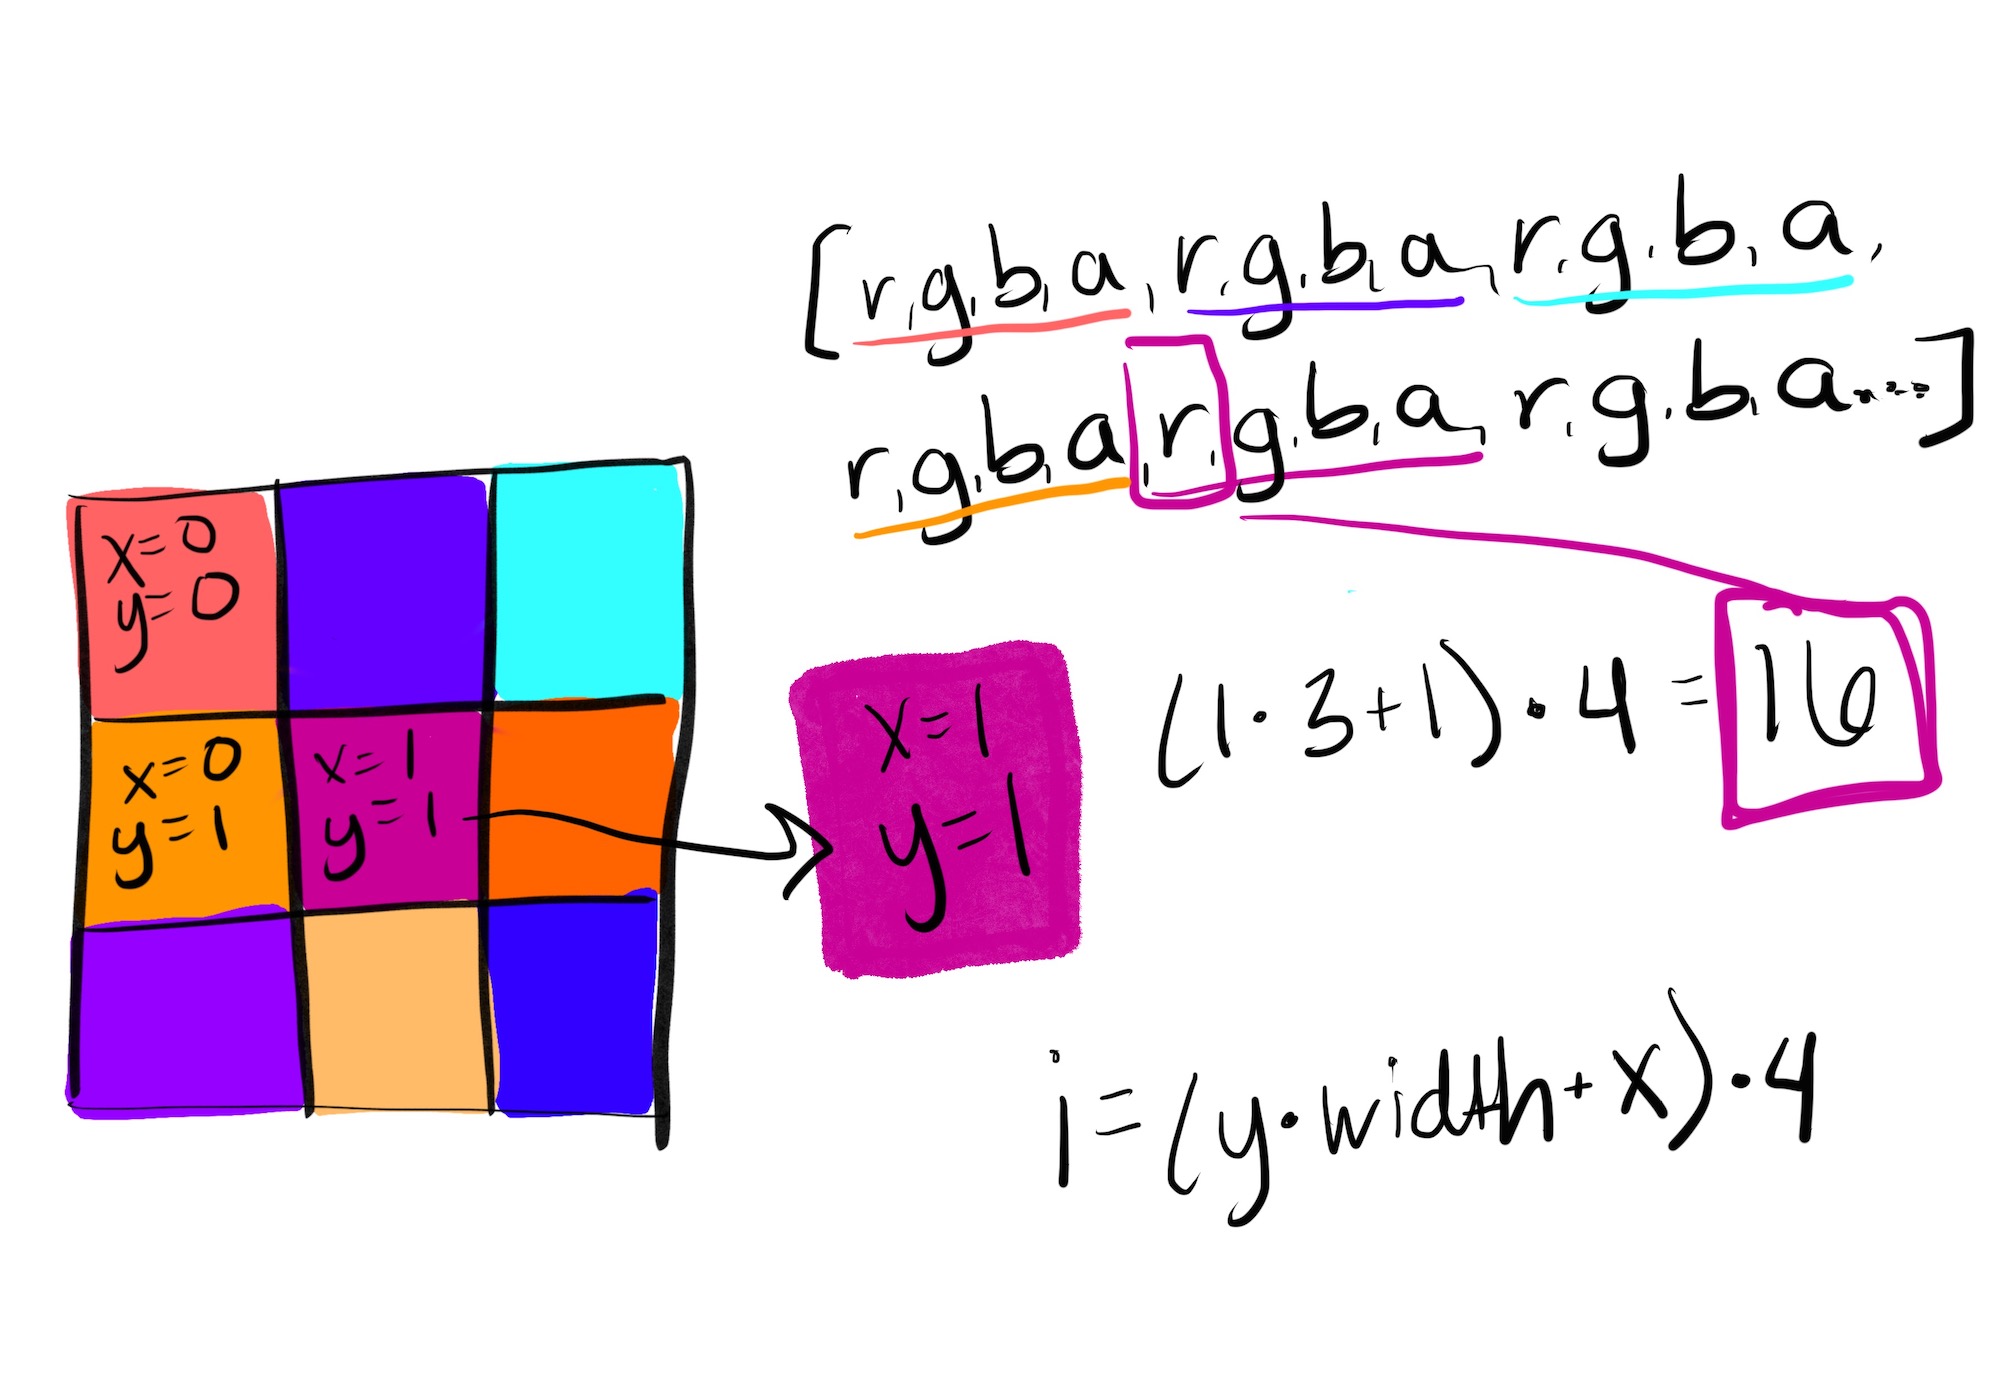 [r,g,b,a,r,g,b,a,r,g,b,a,
r,g,b,a,r,g,b,a,r,g,b,a....]
x=0
y=0
x=0
y=1
x=1
y=1
x=1
y=1
(1·3+1)·4=16
i=(y·width+x)·4